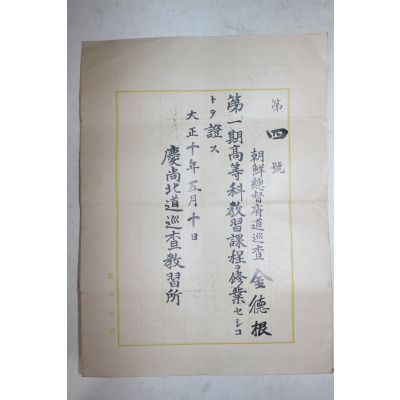 第四號
朝鮮總督府道巡查 金德根
第一期高等科教習課程ヲ修業セシコ
トヲ證ス
大正十年五月十日
慶尚北道巡查教習所